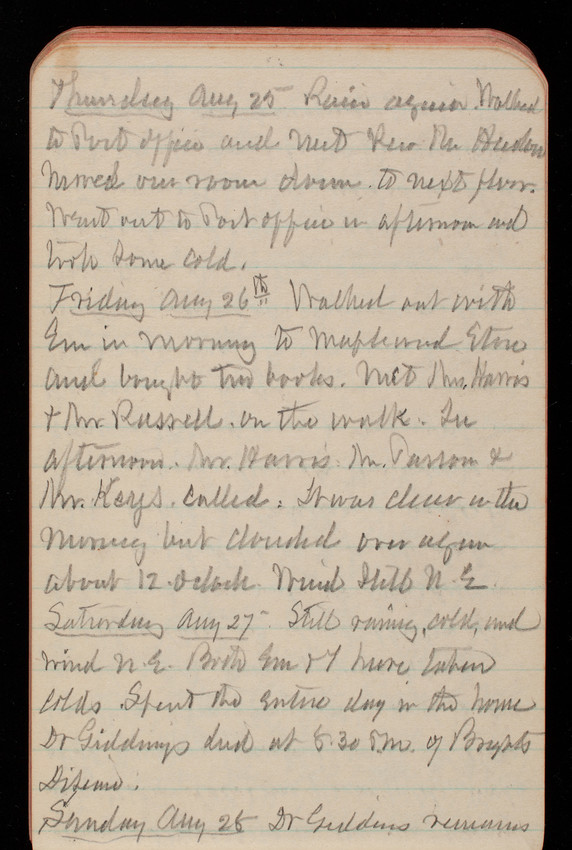 Thursday Aug 25 Rain again. Walked
to Post office and met Rev. Mr.
Moved our room down to next floor.
Went out to Post office in afternoon and
took some cold.
Friday Aug 26th Walked out with
Em in morning to Maplewood Store
and bought two books. Met Mrs. Harris
+ Mr. Russell. on the walk. In
afternoon. Mr. Harris. Mr. Parsons &
Mr. Keys. called. It was clear in the
morning but clouded over again
about 12 oclock. Wind still N.E.
Saturday Aug 27 Still raining, cold, and
wind N.E. Both Em & I have taken
colds. Spent the entire day in the house
Dr Giddings died at 8.30 P.M. of Brights
Disease.
Sunday Aug 28 Dr Giddins remains